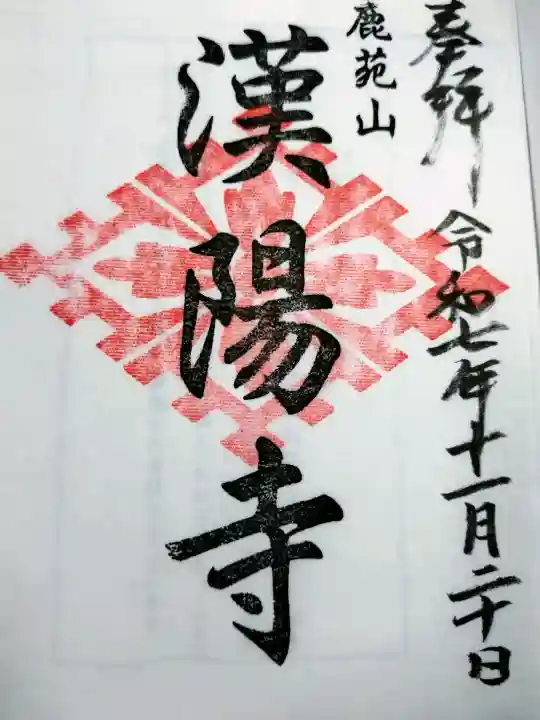 奉拝 令和七年十一月二十日
鹿苑山
漢陽寺